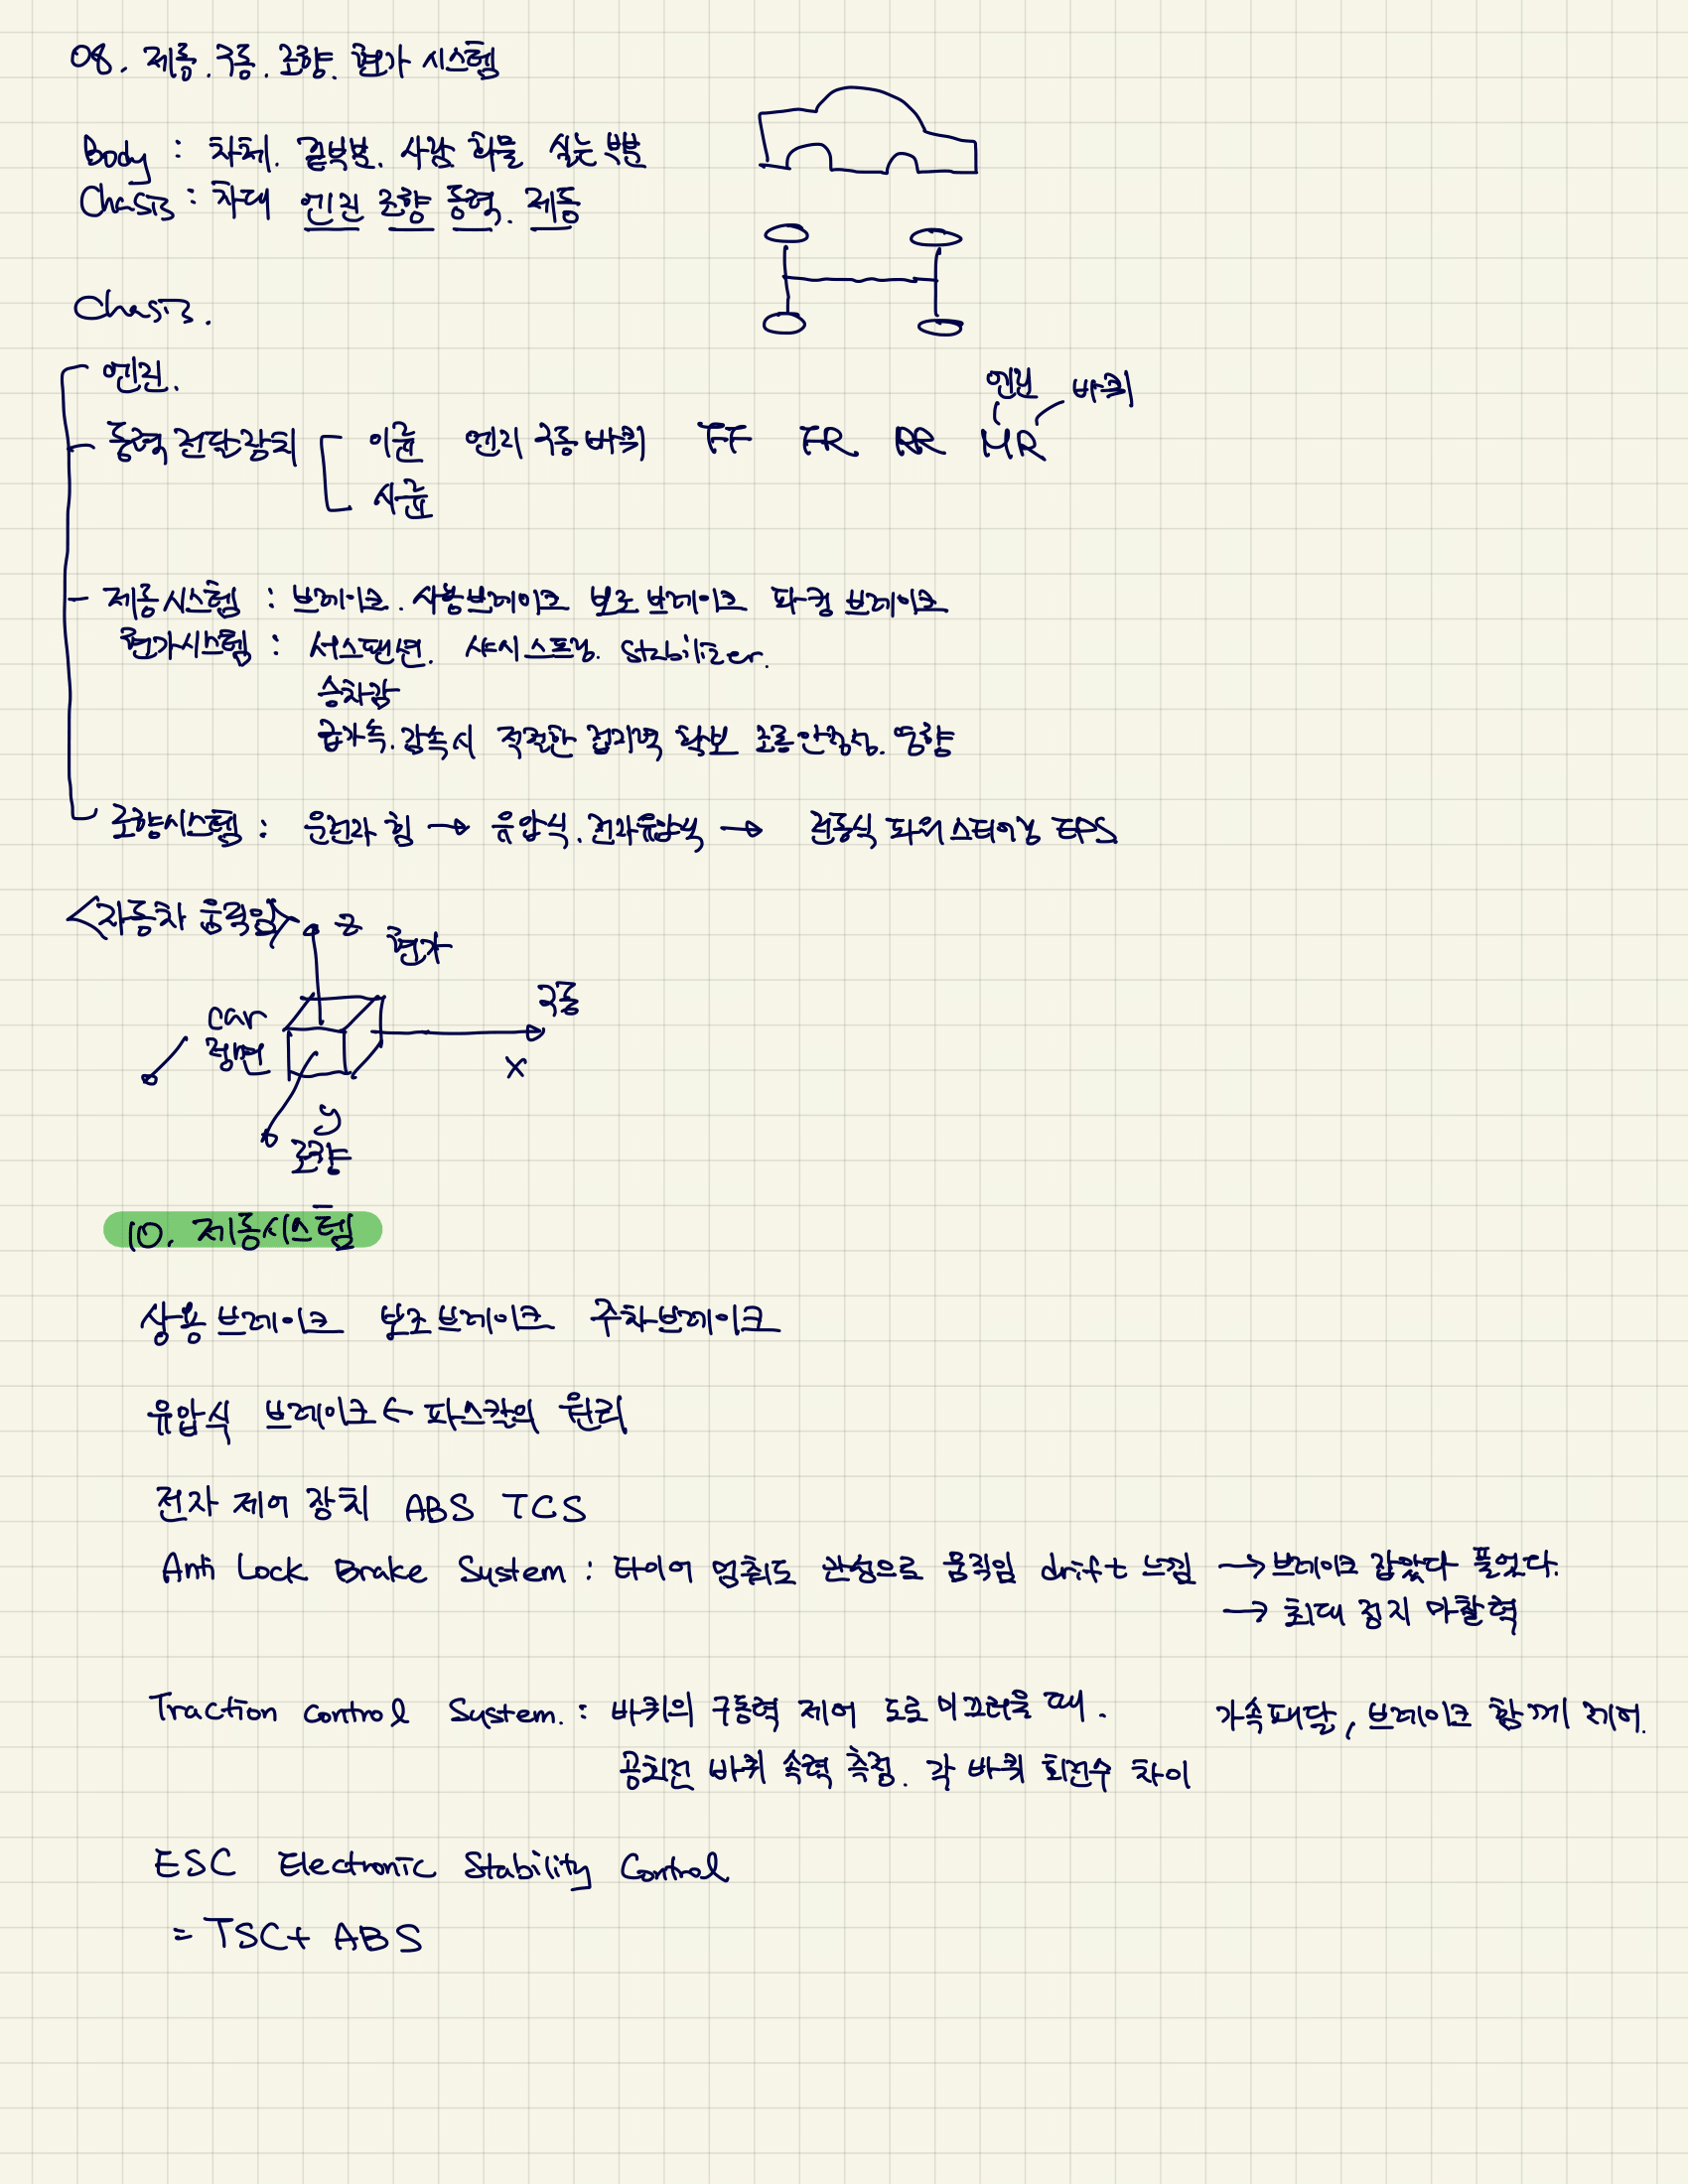 08. 제동. 구동. 조향. 현가 시스템
Body : 차체. 겉부분. 사람 화물 싣는 부분
Chasis : 차대 엔진 조향 동력. 제동
Chasis.
엔진.
엔진 바퀴
동력 전달장치 이륜 엔진 구동바퀴 FF FR RR MR
사륜
제동시스템 : 브레이크. 사용브레이크 보조 브레이크 파킹 브레이크
현가시스템 : 서스펜션. 섀시스프링. Stabilizer.
승차감
급가속. 감속시 적절한 접지력 확보 조종안정성. 영향
조향시스템 : 운전자 힘 → 유압식. 전자유압식 → 전동식 파워스티어링 EPS
<자동차 움직임> z
현가
car
정면
구동
x
y
조향
10. 제동시스템
상용 브레이크 보조브레이크 주차브레이크
유압식 브레이크 ← 파스칼의 원리
전자 제어 장치 ABS TCS
Anti Lock Brake System : 타이어 멈춰도 관성으로 움직임 drift 느낌 → 브레이크 잡았다 풀었다.
→ 최대 정지 마찰력
Traction Control System. : 바퀴의 구동력 제어 도로 미끄러울 때. 가속패달, 브레이크 함께 제어.
공회전 바퀴 속력 측정. 각 바퀴 회전수 차이
ESC Electronic Stability Control
= TSC+ ABS